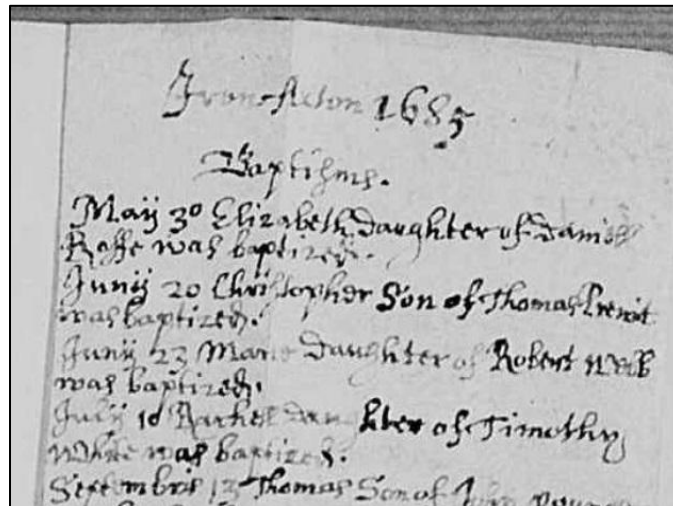 Iron-Acton 1685
Baptisms.
May 30 Elizabeth daughter of daniel
was baptized.
Junij 20 Christopher Son of Thomas Prewit
was baptized.
Junij 23 Marie daughter of Robert Webb
was baptized.
July 10 Rachell daughter of Timothy
White was baptized.
Septembris 13 Thomas Son of John